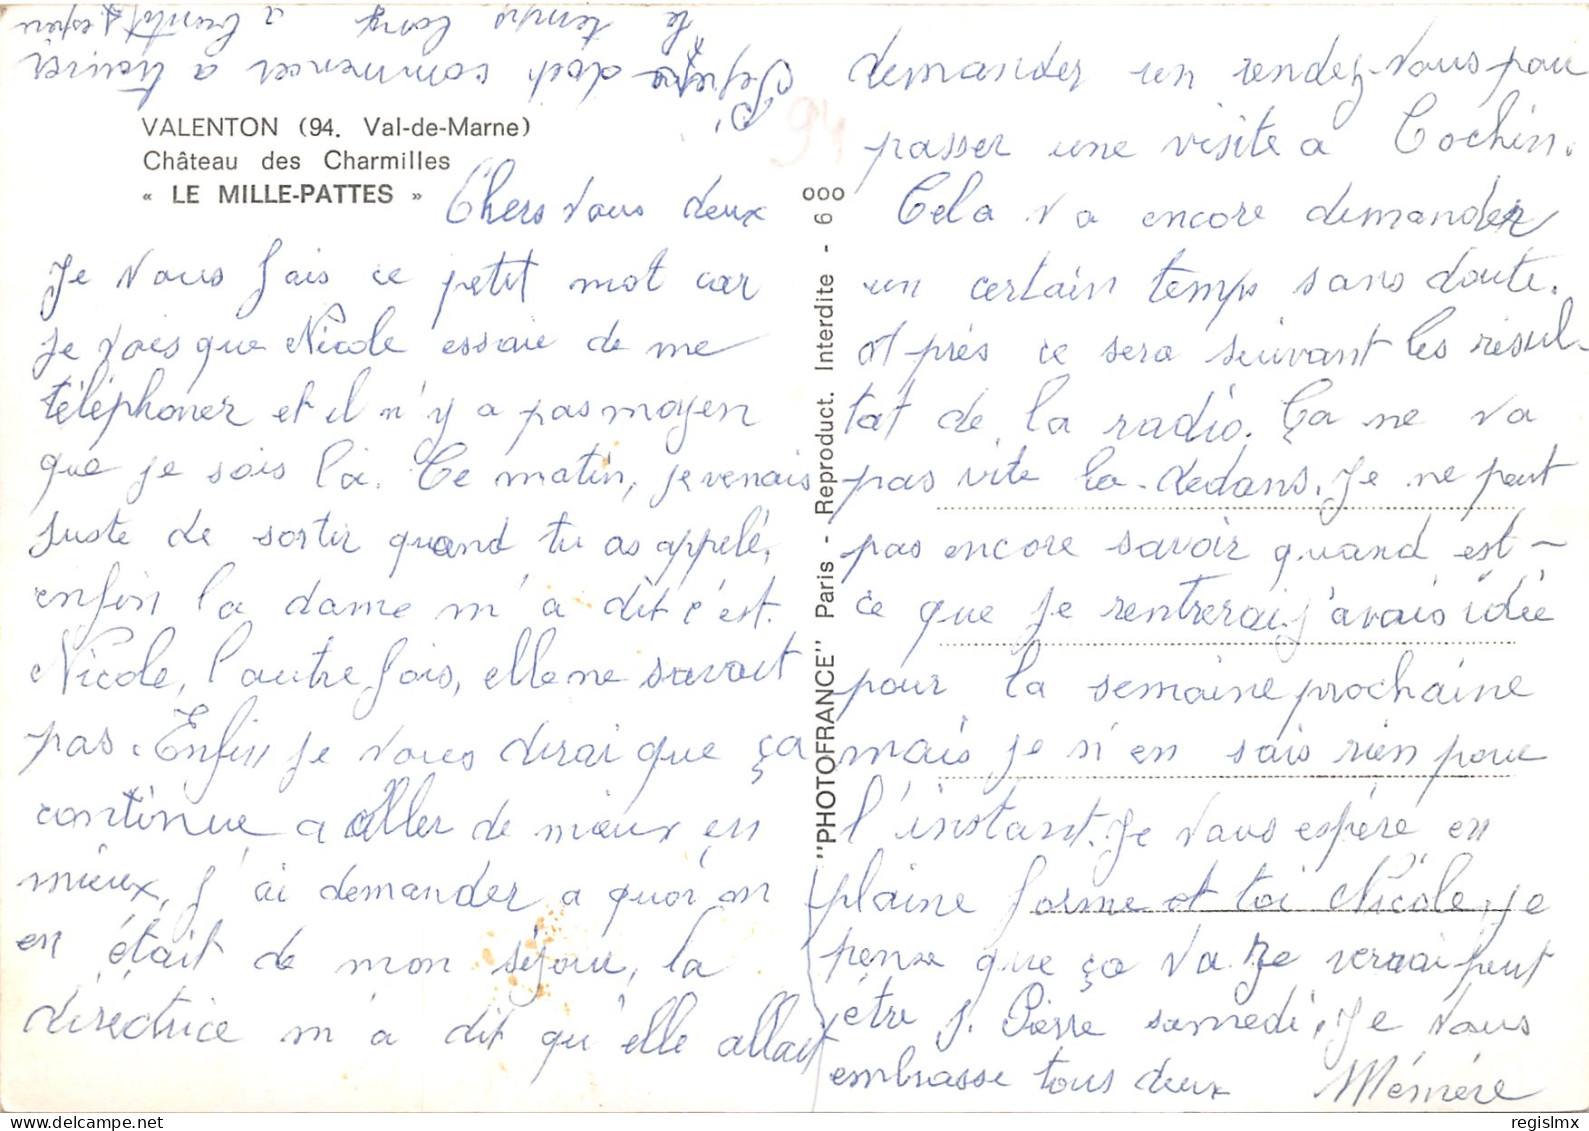 VALENTON (94. Val-de-Marne)
Château des Charmilles
« LE MILLE-PATTES »
Chers vous deux
Je vous fais ce petit mot car
je vois que Nicole essaie de me
téléphoner et il n'y a pas moyen
que je sois là. Ce matin, je venais
juste de sortir quand tu as appelé,
enfin la dame m'a dit c'est
Nicole, l'autre fois, elle ne savait
pas. Enfin je vous dirai que ça
continue a aller de mieux en
mieux, j'ai demander a quoi on
en était de mon séjour, la
directrice m'a dit qu'elle allait
demander un rendez-vous pour
passer une visite a Cochin.
Cela va encore demander
un certain temps sans doute.
et près ce sera suivant les résul-
tat de la radio. Ça ne va
pas vite la-dedans. Je ne peut
pas encore savoir quand est-
ce que je rentrerai j'avais idée
pour la semaine prochaine
mais je n'en sais rien pour
l'instant. Je vous espère en
plaine forme et toi Nicole, je
pense que ça va. Je verrai peut
être J. Pierre samedi, Je vous
embrasse tous deux Mémère
doit commencer a trouver
le temps long a bientôt j'espère
94
"PHOTOFRANCE" Paris - Reproduct. Interdite - 6 000
regislmx